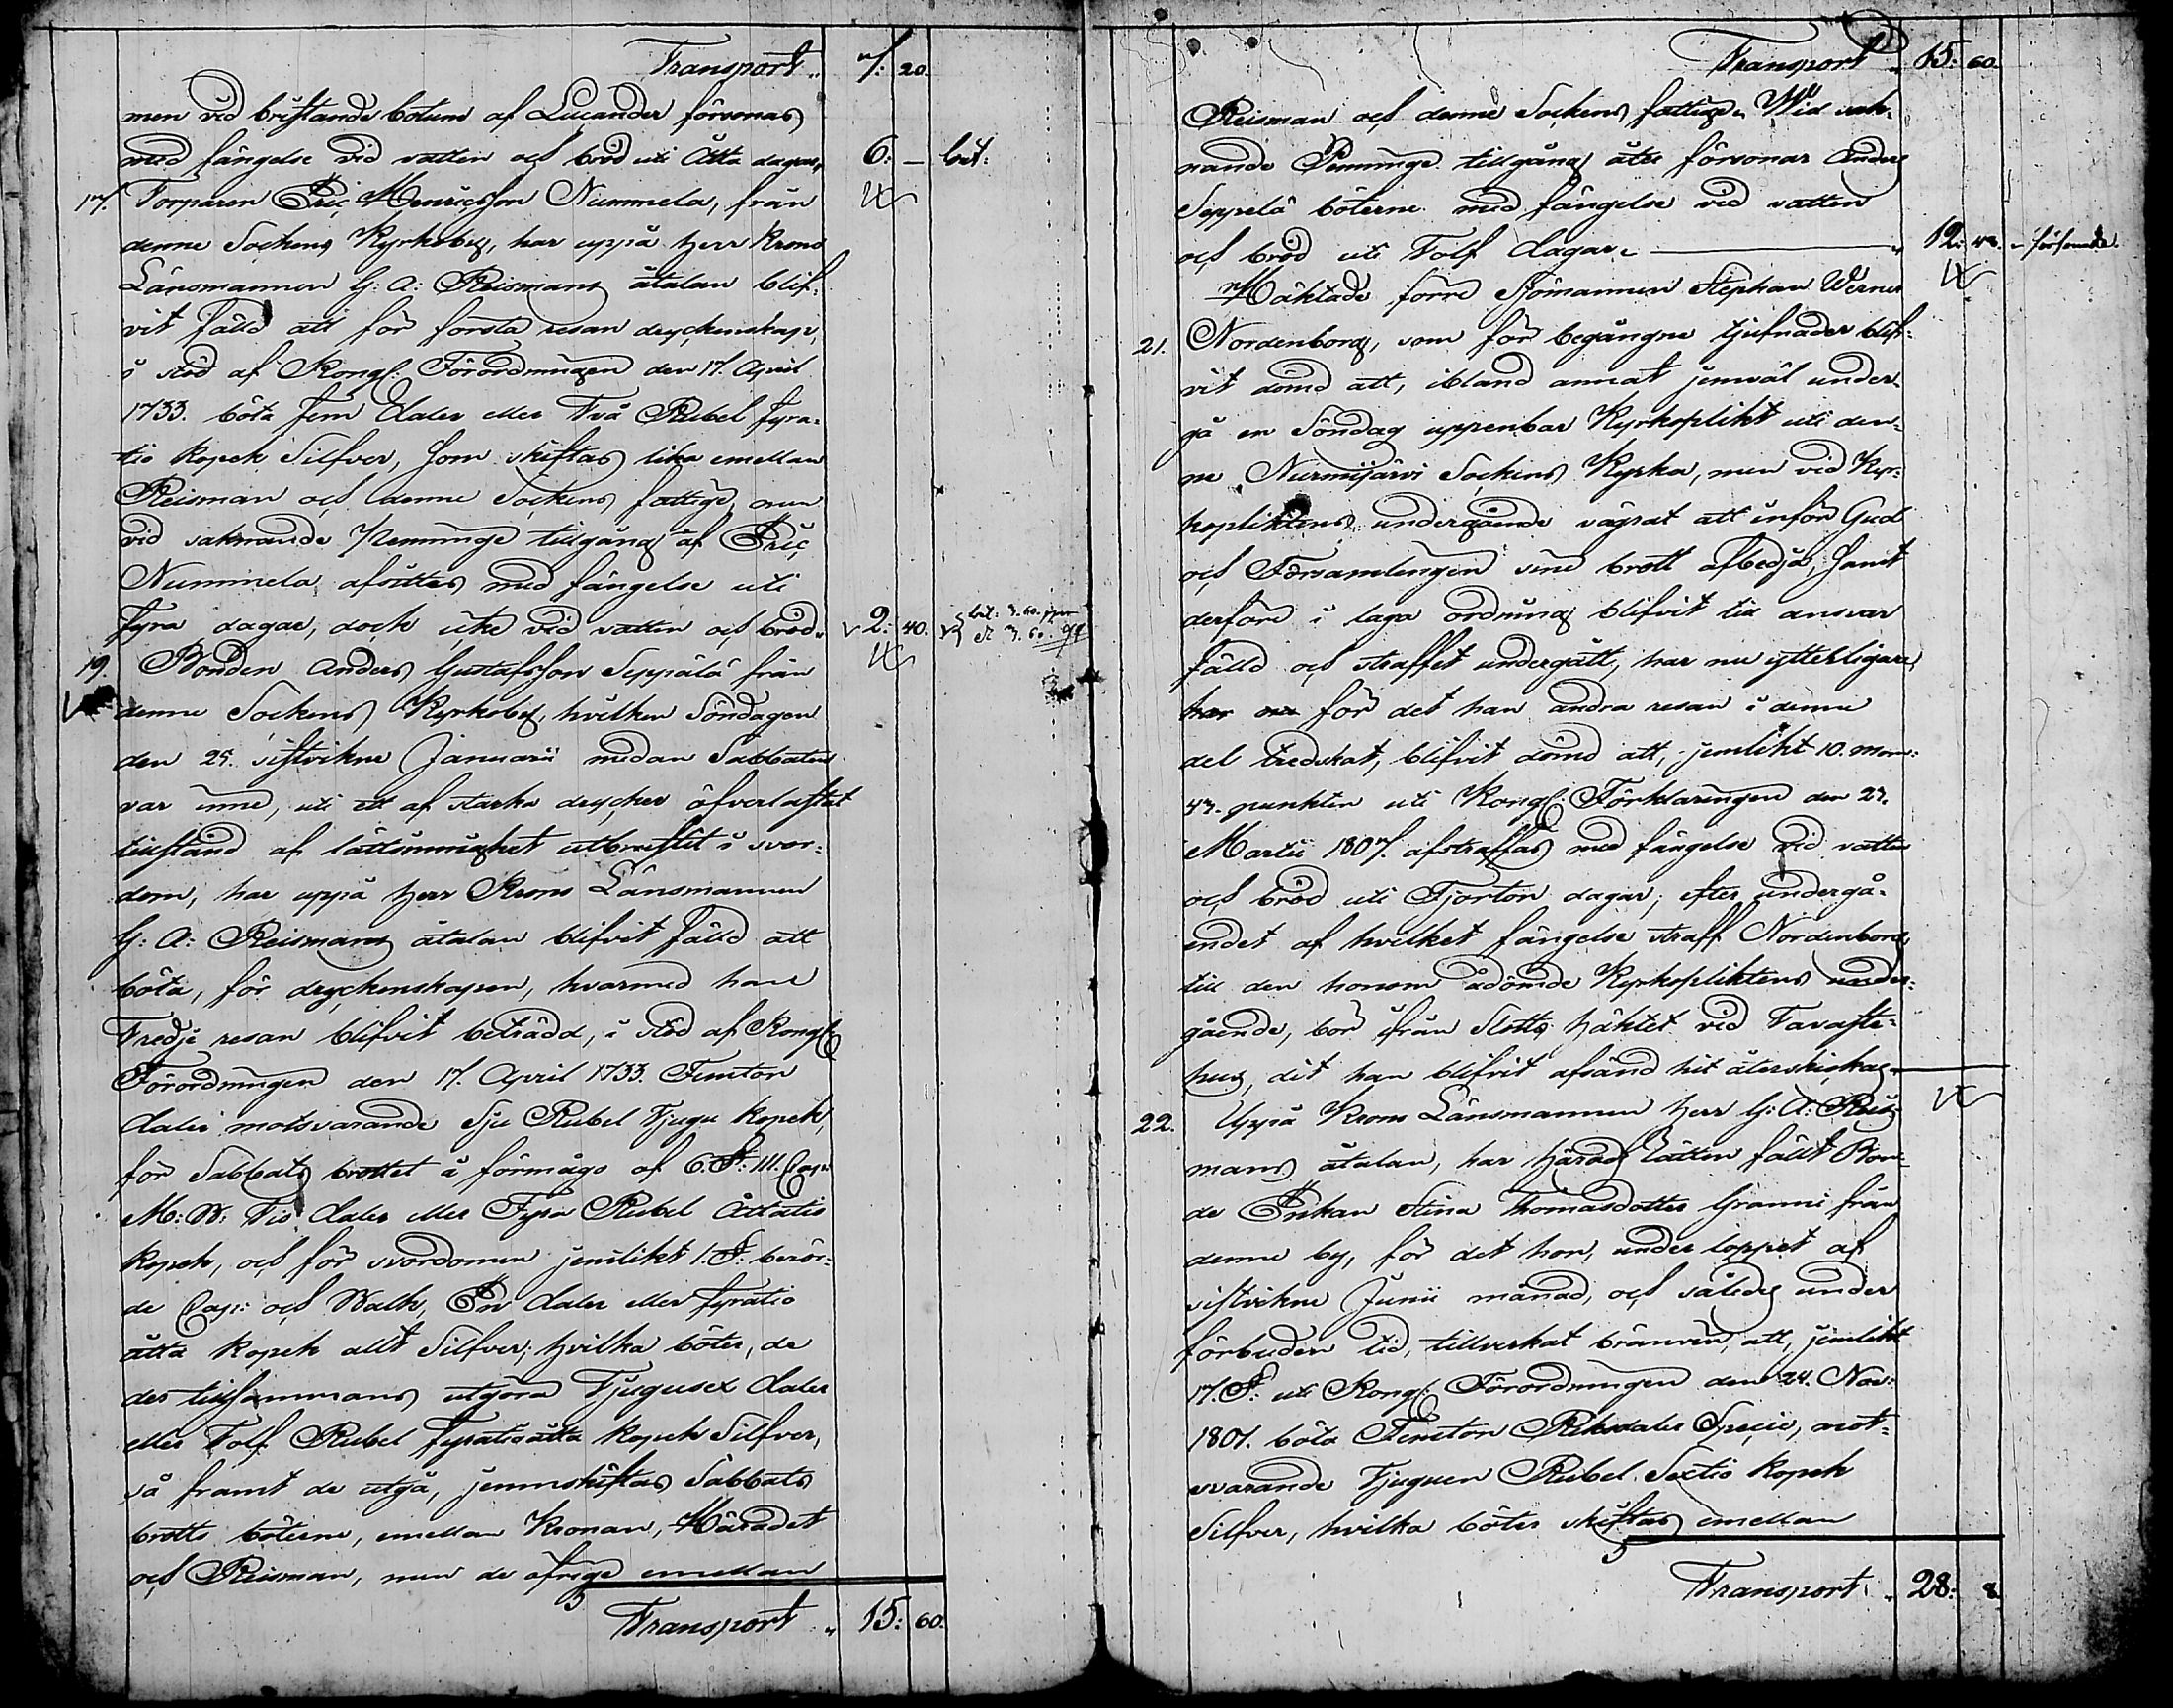 Transport „ 7: 20.
men vid bristande botum af Lucander försonas
med fängelse vid vatten och bröd uti Åtta dagar„ 6: — bet:
17. Torparen Eric Henricsson Nummela, från
denne Sockens Kyrkoby, har uppå Herr Krono
Länsmannen G: A: Reismans åtalan blif-
vit fälld att för första resan dryckenskap,
i stöd af Kongl: Förordningen den 17. April
1733. böta Fem Daler eller Två Rubel fyra-
tio Kopek Silfver, som skiftas lika emellan
Reisman och denne Sockens fattige, men
vid saknande Penninge tillgång af Eric
Nummela afsittes med fängelse uti
fyra dagar, dock icke vid vatten och bröd„ 2: 40.
19. Bonden Anders Gustafsson Seppälä från
denne Sockens Kyrkoby, hvilken Söndagen
den 25. sistvikne Januarii medan Sabbaten
var inne, uti ett af starka drycker öfverlastet
tillstånd af lättsinnighet utbrustit i svor-
dom, har uppå Herr Krono Länsmannen
G: A: Reismans åtalan blifvit fälld att
böta, för dryckenskapen, hvarmed han
Tredje resan blifvit beträdd, i stöd af Kongl:
Förordningen den 17. April 1733. Femton
daler motsvarande Sju Rubel Tjugu Kopek,
för Sabbats brottet i förmågo af 6. §: III. Cap:
M: B: Tio daler eller Fyra Rubel Åttatio
kopek, och för svordomen jemlikt 1. §: berör-
de Cap: och Balk, En daler eller fyratio
åtta kopek allt Silfver; hvilka böter, de
der tillsammans utgöra Tjugusex daler
eller Tolf Rubel fyratioåtta kopek Silfver,
så framt de utgå, jemnskiftas Sabbats
brotts böterne, emellan Kronan, Häradet
och Reisman, men de öfrige emellan
Transport „ 15: 60.
Transport „ 15: 60.
Reisman och denne Sockens fattige. Wid sak-
nande Penninge tillgång åter försonar Anders
Seppälä böterne med fängelse vid vatten
och bröd uti Tolf dagar „ 12: 48. försonade.
Häktade förre Sjömannen Stephan Werner
21. Nordenborg, som för begångne tjufnader blif-
vit dömd att, ibland annat jemväl under-
gå en Söndag uppenbar Kyrkoplikt uti den-
ne Nurmijärvi Sockens Kyrka, men vid Kyr-
kopliktens undergående vägrat att inför Gud
och Församlingen sine brott afbedja, samt
derföre i laga ordning blifvit till ansvar
fälld och straffet undergått, har nu ytterligare
har nu för det han andra resan i denne
del tredskat, blifvit dömd att, jemlikt 10. mom:
43. punkten uti Kongl: Förklaringen den 23.
Martii 1807. afstraffas med fängelse vid vatten
och bröd uti Fjorton dagar; efter undergå-
endet af hvilket fängelse straff Nordenborg,
till den honom ådömde Kyrkopliktens under-
gående, bör ifrån Slotts häktet vid Tavaste-
hus, dit han blifvit afsänd hit återskickas.
22. Uppå Krono Länsmannen Herr G: A: Reis-
mans åtalan, har Härads Rätten fällt Bon-
de Enkan Stina Thomasdotter Granni från
denne by, för det hon, under loppet af
sistvikne Junii månad, och således under
förbuden tid, tillverkat bränvin, att, jemlikt
17. §: uti Kongl: Förordningen den 24. Nov:
1807. böta Femton Riksdaler Specie, mot-
svarande Tjuguen Rubel Sextio kopek
Silfver, hvilka böter skiftas emellan
Transport „ 28: 8.